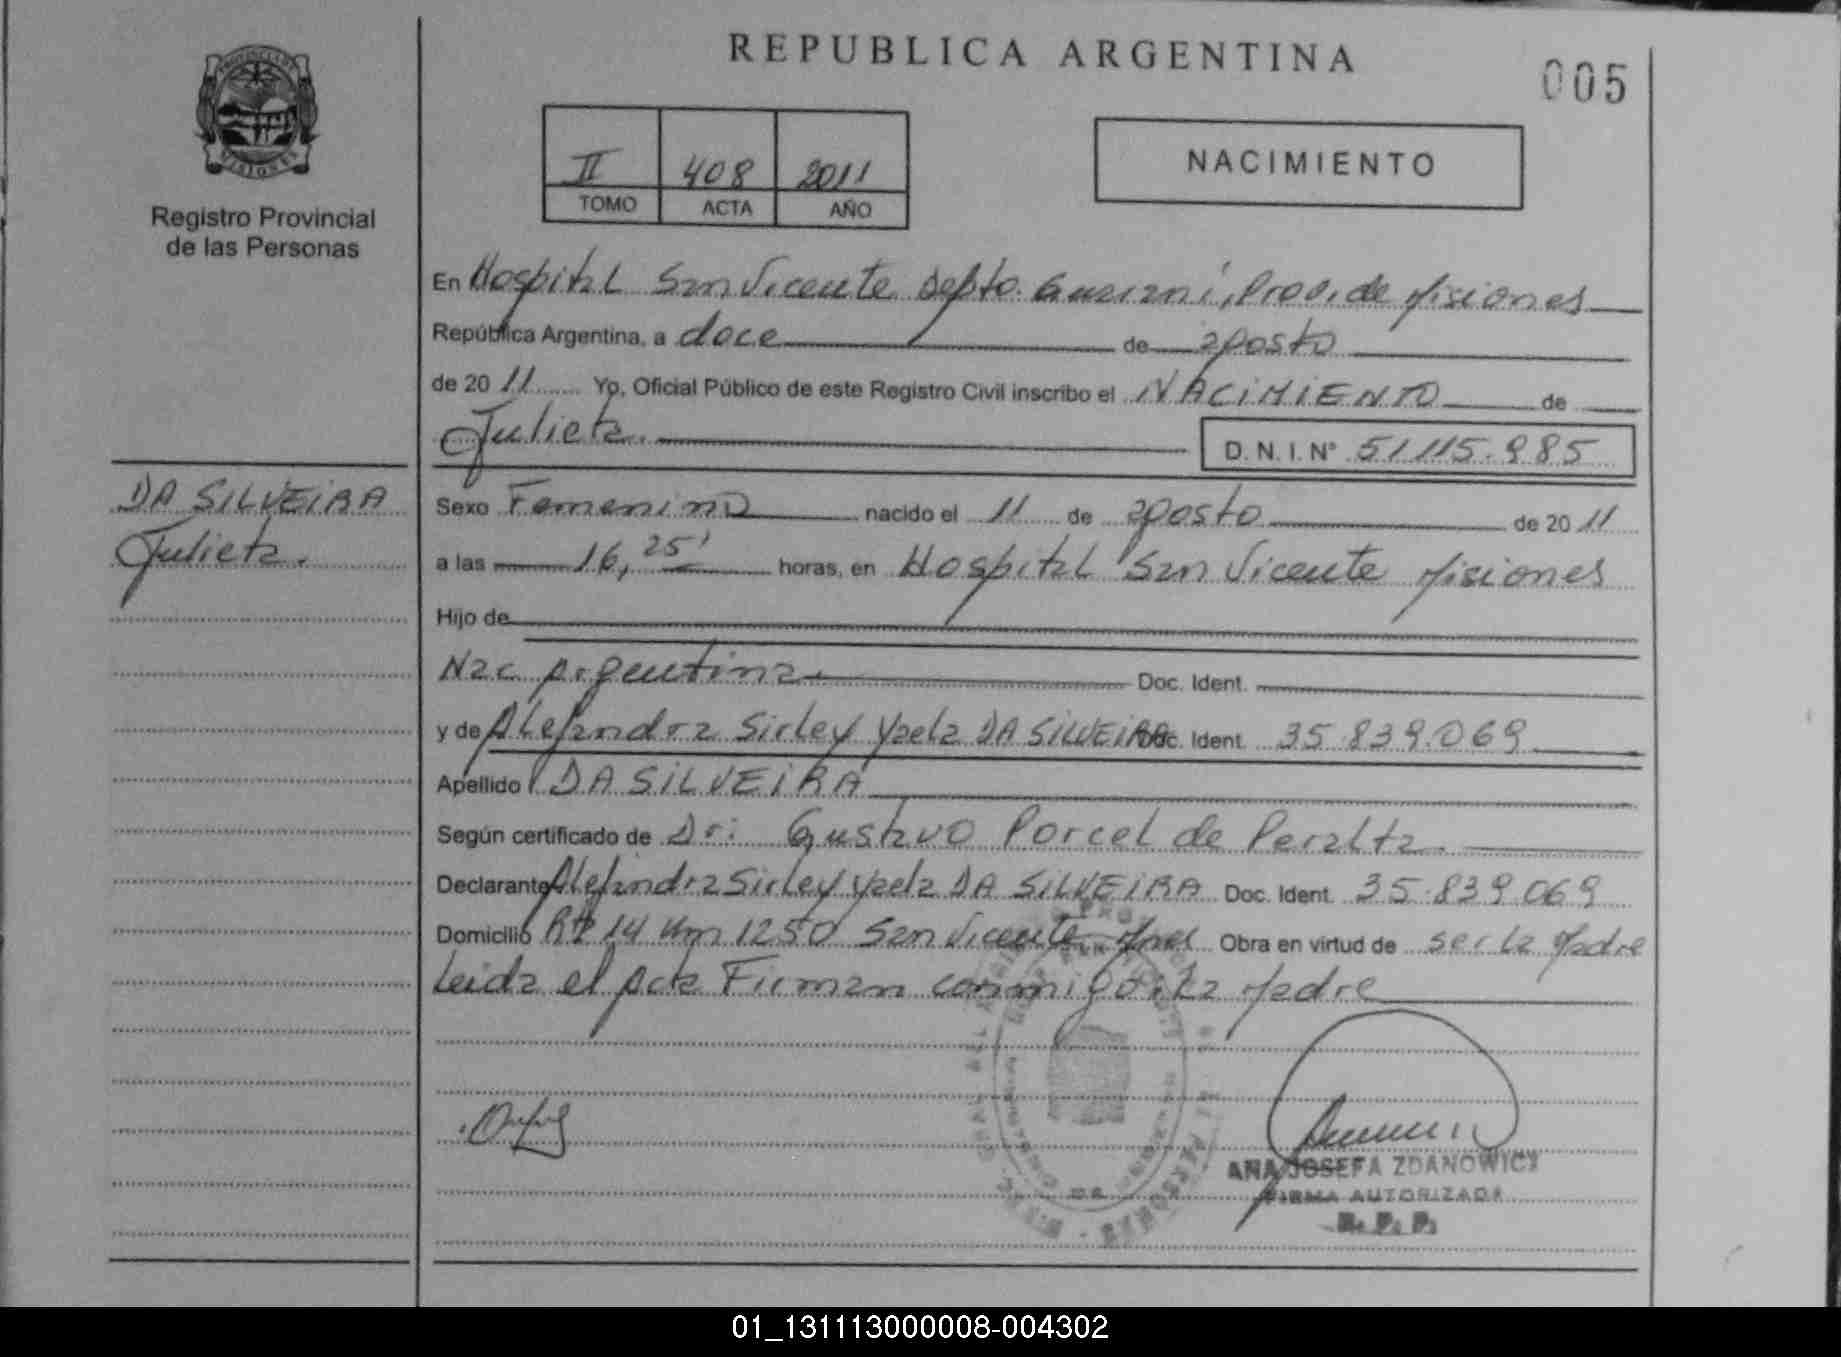 REPUBLICA ARGENTINA
005
PROVINCIA DE
MISIONES
Registro Provincial
de las Personas
II 408 2011
TOMO ACTA AÑO
NACIMIENTO
En Hospital San Vicente Depto. Guaraní, Prov. de Misiones
República Argentina, a doce de agosto
de 20 11 Yo, Oficial Público de este Registro Civil inscribo el NACIMIENTO de
Julieta. D. N. I. Nº 51.115.985
DA SILVEIRA
Julieta.
Sexo Femenino nacido el 11 de agosto de 20 11
a las 16, 25' horas, en Hospital San Vicente Misiones
Hijo de
Nac Argentina Doc. Ident.
y de Alejandra Sirley Yaela DA SILVEIRA Doc. Ident. 35.839.069
Apellido DA SILVEIRA
Según certificado de Dr: Gustavo Porcel de Peralta.
Declarante Alejandra Sirley Yaela DA SILVEIRA Doc. Ident. 35.839.069
Domicilio Rta 14 Km 1250 San Vicente Mnes Obra en virtud de ser la Madre
Leida el Acta Firman conmigo, La Madre
ANA JOSEFA ZDANOWICZ
FIRMA AUTORIZADA
R. P. P.
01_131113000008-004302